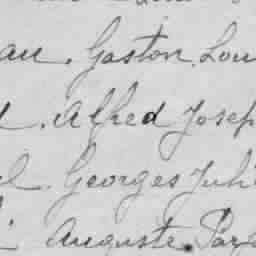 au. Gaston Lou
. Alfred Josep
l. Georges Juli
Auguste. Par